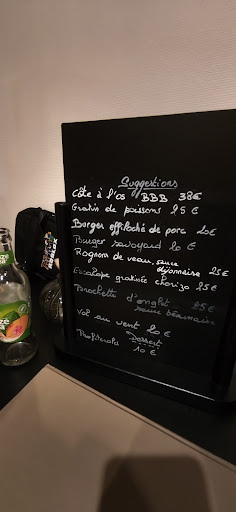 Suggestions
Côte à l'os BBB 38€
Gratin de poissons 25€
Burger effiloché de porc 20€
Burger savoyard 20€
Rognon de veau, sauce
dijonnaise 25€
Escalope gratinée chorizo 25€
Brochette d'onglet 25€
sauce béarnaise
Vol au vent 20€
Dessert
Profiterols 10€